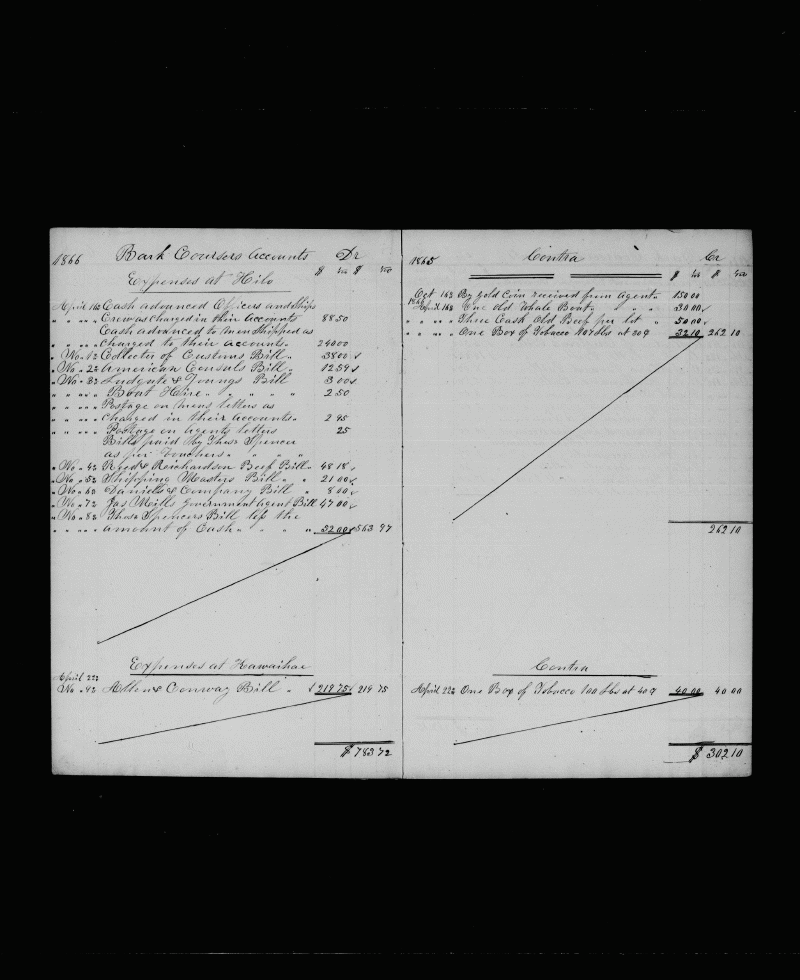 1866 Bark Coursers Accounts Dr
$ cts $ cts
Expenses at Hilo
April 16th Cash advanced Officers and Ships
" " " " Crew as charged in their Accounts 88 50
Cash advanced to men Shipped as
" " " " Charged to their accounts " 240 00
" No " 1 " Collector of Customs Bill " 38 00 ✓
" No " 2 " American Consuls Bill " 12 59 ✓
" No " 3 " & Youngs Bill 3 00 ✓
" " " " Boat Hire " " " " 2 50
" " " " Postage on mens letters as
" " " " Charged in their accounts " 2 95
" " " " Postage on Agents letters 25
Bills paid by Thos Spencer
as per Vouchers " " " "
" No " 4 " Reed & Reichardson Beef Bill " 48 18 ✓
" No " 5 " Shipping Masters Bill " " 21 00 ✓
" No " 6 " Daniels & Company Bill " 8 00 ✓
" No " 7 " Jas Mills Government Agent Bill 47 00 ✓
" No " 8 " Thos Spencers Bill less the
" " " " amount of Cash " " " " 52 00 ✓ 563 97
Expenses at Kawaihae
April 22
No " 9 " Allen & Conway Bill " 219 75 219 75
$ 783 72
1865 Contra Cr
$ cts $ cts
Oct 16 By gold Coin received from Agent " 150 00
1866
April 16 One old Whale Boat " " " 30 00 ✓
" " " " Three Cask Old Beef per lot " 50 00 ✓
" " " " One Box of Tobacco 107 lbs at 30 ¢ 32 10 262 10
262 10
Contra
April 22 One Box of Tobacco 100 lbs at 40 ¢ 40 00 40 00
$ 302 10